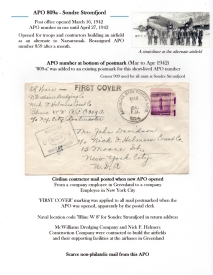 APO 809a - Sondre Stromfjord
Post office opened March 16, 1942
APO number in use until April 27, 1942
Opened for troops and contractors building an airfield
as an alternate to Narsarssuak. Reassigned APO
number 859 after a month.
A contributor at the alternate airfield
APO number at bottom of postmark (Mar to Apr 1942)
'809-a' was added to an existing postmark for this shortlived APO number
Censor 909 used for all units at Sondre Stromfjord
FIRST COVER
Mr. John Davidson
c/o Nick F. Helmers Co.
New York City
N.Y.
Civilian contractor mail posted when new APO opened
From a company employee in Greenland to a company
Employee in New York City
'FIRST COVER' marking was applied to all mail postmarked when the
APO was opened, apparently by the postal clerk
Naval location code "Bluie W 8" for Sondre Stromfjord in return address
McWilliams Dredging Company and Nick F. Helmers
Construction Company were contracted to build the airfields
and their supporting facilities at the airbases in Greenland
Scarce non-philatelic mail from this APO